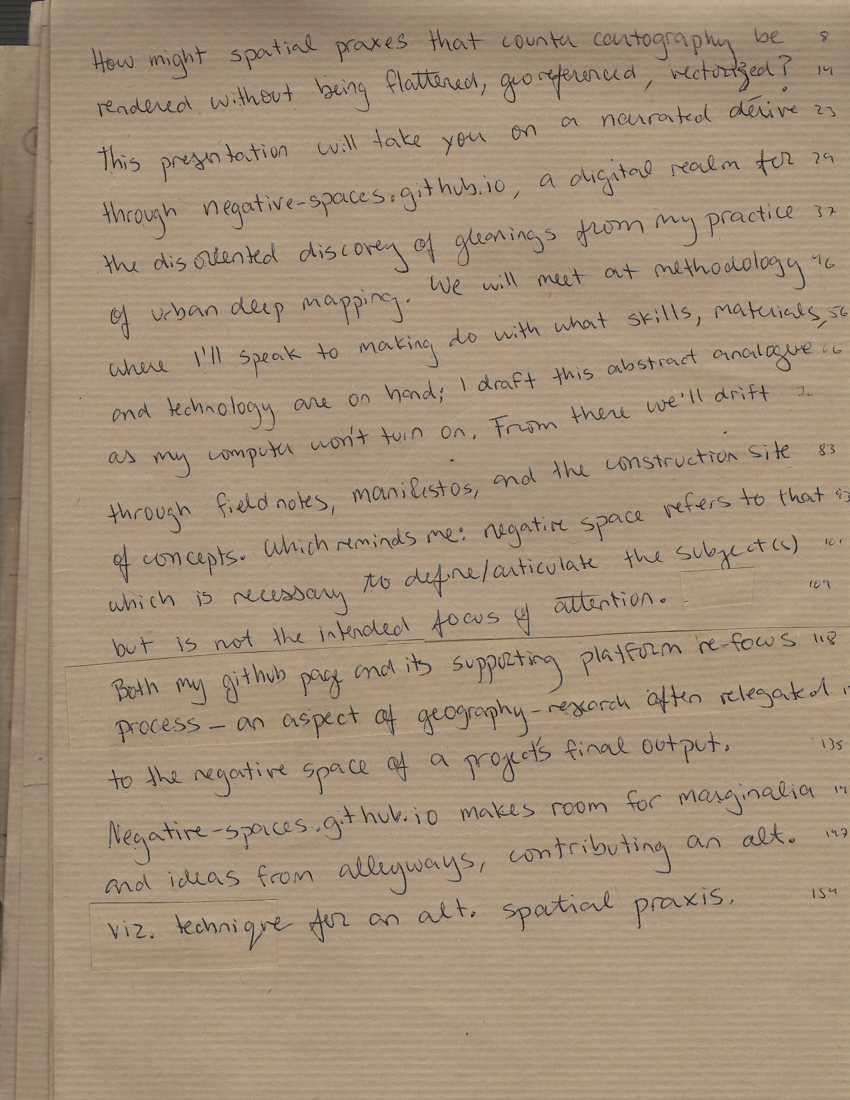 How might spatial praxes that counter cartography be 8
rendered without being flattened, georeferenced, vectorized? 14
This presentation will take you on a narrated dérive 23
through negative-spaces.github.io, a digital realm for 29
the disoriented discovery of gleanings from my practice 37
of urban deep mapping. We will meet at methodology 46
where I'll speak to making do with what skills, materials, 56
and technology are on hand; I draft this abstract analogue 66
as my computer won't turn on. From there we'll drift
through fieldnotes, manifestos, and the construction site 83
of concepts. Which reminds me: negative space refers to that 93
which is necessary to define/articulate the subject(s) 101
but is not the intended focus of attention. 109
Both my github page and its supporting platform re-focus 118
process — an aspect of geography-research often relegated
to the negative space of a project's final output. 135
Negative-spaces.github.io makes room for marginalia
and ideas from alleyways, contributing an alt. 147
viz. technique for an alt. spatial praxis. 154